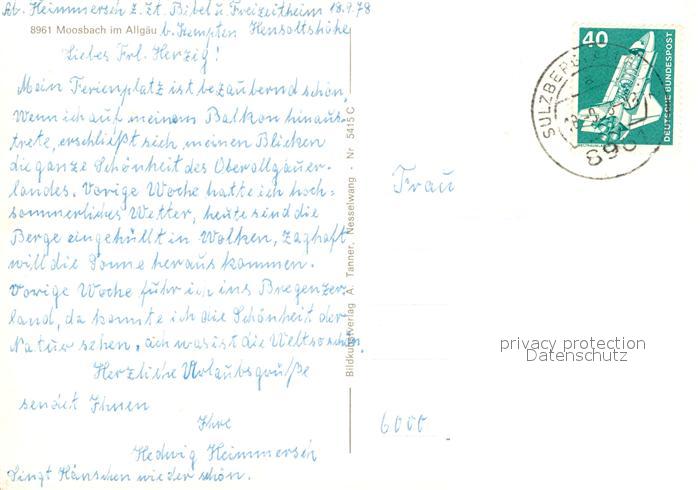 Ab. Heimmersch z. Zt. Bibel u. Freizeitheim 18.9.78
8961 Moosbach im Allgäu b. Kempten Hensoltshöhe
Liebes Frl. Herzig!
Mein Ferienplatz ist bezaubernd schön,
Wenn ich auf meinem Balkon hinaus-
trete, erschließt sich meinen Blicken
die ganze Schönheit des Oberallgäuer-
landes. Vorige Woche hatte ich hoch-
sommerliches Wetter, heute sind die
Berge eingehüllt in Wolken, zaghaft
will die Sonne heraus kommen.
Vorige Woche fuhr ich ins Bregenzer-
land, da konnte ich die Schönheit der
Natur sehen, ach was ist die Welt so schön.
Herzliche Urlaubsgrüße
sendet Ihnen
Ihre
Hedwig Heimmersch
Singt Hänschen wieder schön.
Bildkunstverlag A. Tanner, Nesselwang - Nr 5415 C
40
DEUTSCHE BUNDESPOST
SULZBERG
Frau
privacy protection
Datenschutz
6000